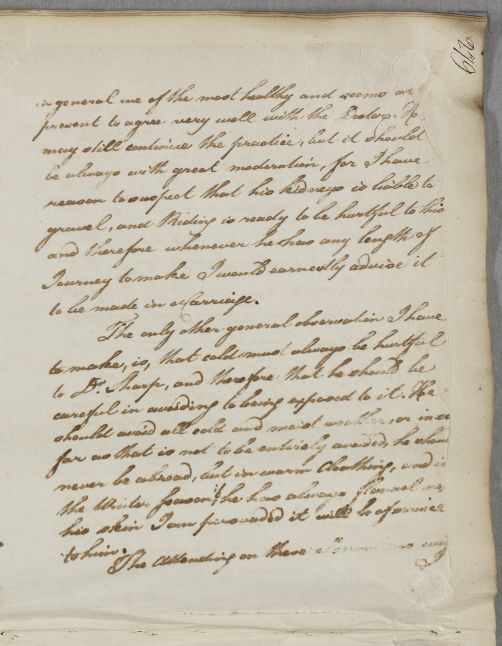 246
in general one of the most healthy and seems at
present to agree very well with the Doctor. He
may still continue the practice, but it should
be always with great moderation, for I have
reason to suspect that his kidneys is liable to
gravel, and Riding is ready to be hurtful to this
and therefore whenever he has any length of
Journey to make I would earnestly advise it
to be made in a Carriage.
The only other general observation I have
to make, is, that cold must always be hurtful
to Dr. Sharp, and therefore that he should be
careful in avoiding to being exposed to it. He
should avoid all cold and moist weather, or in so
far as that is not to be entirely avoided, he shou
never be abroad, but in warm Cloathing, and in
the Winter season if he has always flannel
his skin I am perswaded it will be of service
to him.
The Attending on these